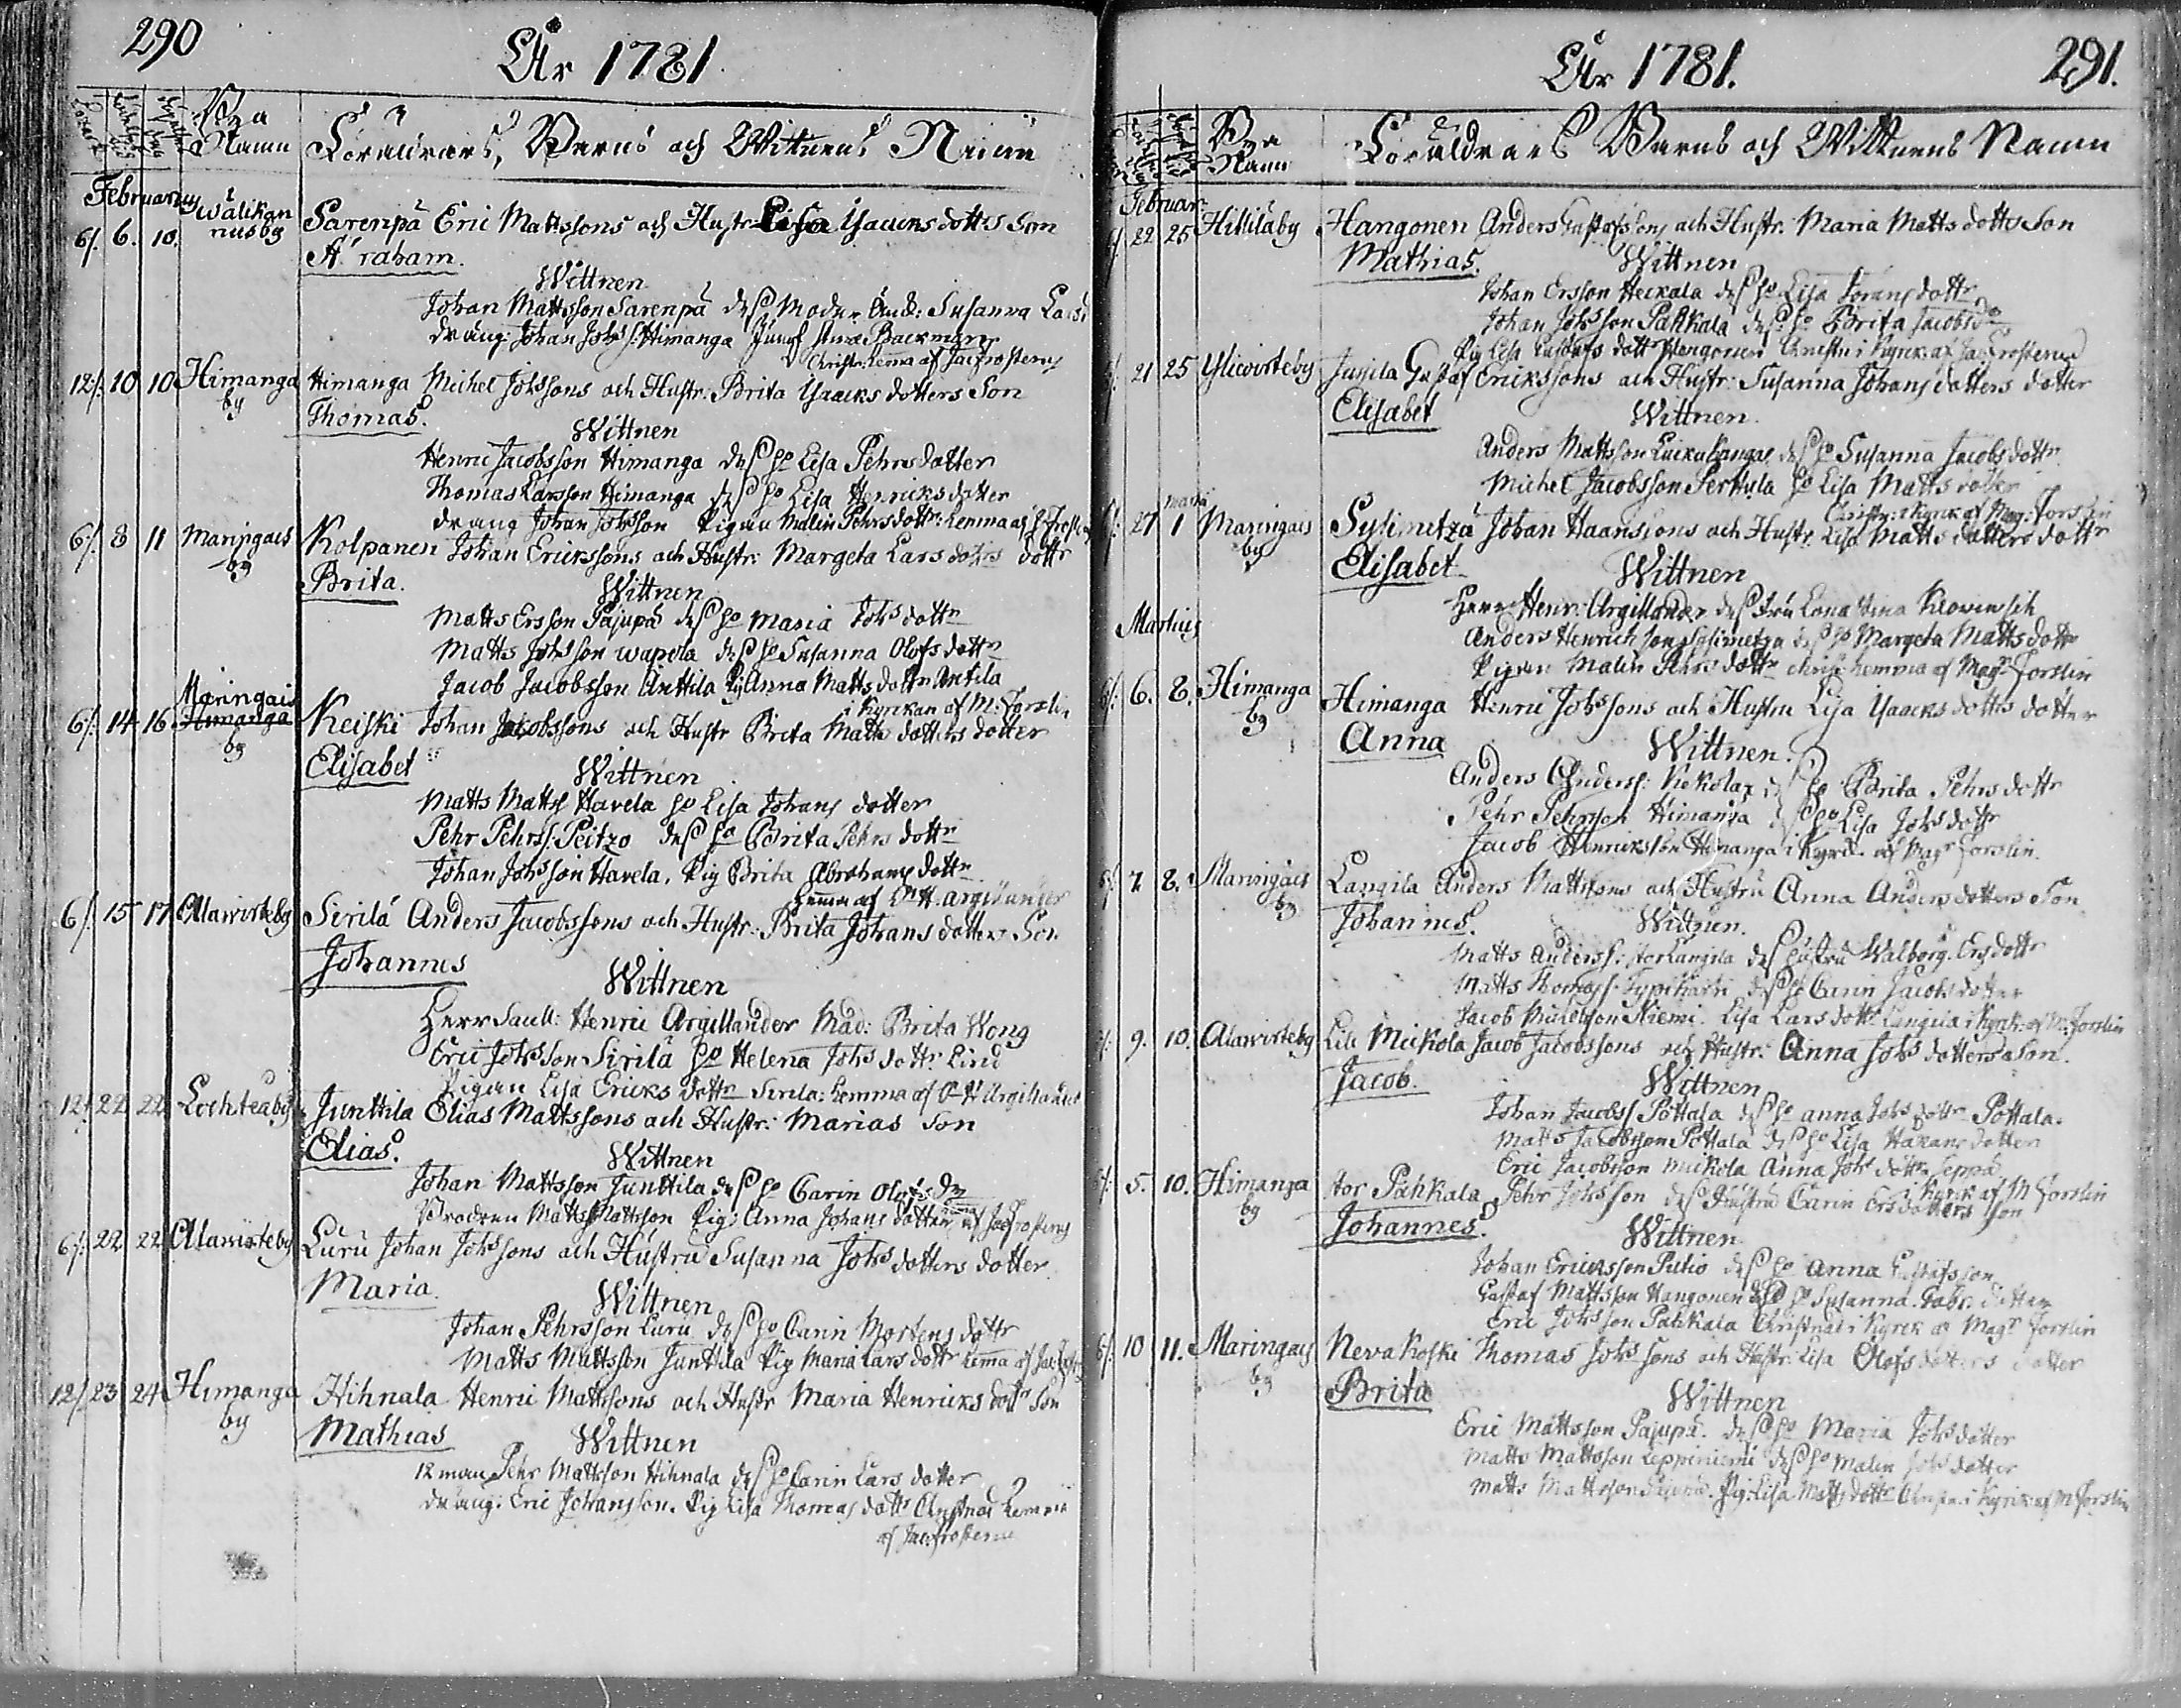 290
År 1781.
Bya Namn
Föräldrars, Barns och Wittnens Namn
Februarius
6/. 6. 10. Wälikannusby Sarenpä Eric Mattssons och Hustr: Lisa Isaacks dotters Son
Abraham.
Wittnen
Johan Mattsson Sarenpä dess Moder Susanna
dräng: Johan Johs S: Himanga Backman
Christn: hemma af Jac Frosterus
12/. 10 10 Himanga by Himanga Michel Johssons och Hustr: Brita Isaacks dotters Son
Thomas.
Wittnen
Henric Jacobsson Himanga dess ho Lisa Pehrs dotter
Thomas Larsson Himanga dess ho Lisa Henricks dotter
dräng Johan Johsson Pigan Malin Pehrs dottr: hemma af
6/. 8 11 Maringais by Kolpanen Johan Erickssons och Hustr: Margeta Lars dotrs dottr
Brita.
Wittnen
Matts Ersson Pajupä dess ho Maria Johs dottr
Matts Johsson Wapola dess ho Susanna Olofs dottr
Jacob Jacobsson Anttila Pig Anna Matts dottr Antila
i Kyrckan af M: Forslin
6/. 14 16 Maringais Himanga by Keiski Johan Jacobssons och Hustr Brita Matts dotters dotter
Elisabet
Wittnen
Matts Mattss Havela ho Lisa Johans dotter
Pehr Pehrss: Peitzo dess ho Brita Pehrs dottr
Johan Johsson Havela. Pig Brita Abrahams dottr
hemma af H. Argillander
6/. 15 17 Alawirteby Sirilä Anders Jacobssons och Hustr: Brita Johans dotters Son
Johannes
Wittnen
Herr Henric Argillander Mad: Brita Wong
Eric Johsson Sirilä ho Helena Johs dottr Lind
Pigan Lisa Ericks dottr Sirilä: hemma af H Argillander
12/. 22 22 Lochteåby Junttila Elias Mattssons och Hustr: Marias Son
Elias.
Wittnen
Johan Mattsson Junttila dess ho Carin Olofs
Brodren Matts Mattsson Pig: Anna Johans dotter af Jac Frosterus
6/. 22 22 Alawirteby Luru Johan Johssons och Hustru Susanna Johs dotters dotter
Maria.
Wittnen
Johan Pehrsson Luru dess ho Carin Mortens dottr
Matts Mattsson Junttila Pig Maria Lars dottr hemma af
12/. 23 24 Himanga by Hihnala Henric Mattssons och Hustr Maria Henricks dottr Son
Mathias
Wittnen
12 man Pehr Mattsson Hihnala dess ho Carin Lars dotter
dräng: Eric Johansson. Pig Lisa Thomas dottr Christnad hemma
af Jac Frosterus
År 1781.
291.
Bya Namn
Föräldrars Barns och Wittnens Namn
Februar:
22 25 Hillilåby Hangonen Anders Gustafssons och Hustr: Maria Matts dotts Son
Mathias.
Wittnen
Johan Ersson Heickala dess ho Lisa Jörans dottr
Johan Johsson Pahkala dess ho Brita Jacobs
Pig Lisa Gustafs dottr Hangonen Christn i Kyrck: af Jac Frosterus
21 25 Yliwirteby Junila Gustaf Erickssons och Hustr: Susanna Johans dotters dotter
Elisabet
Wittnen.
Anders Mattsson dess ho Susanna Jacobs dottr
Michel Jacobsson Perttula ho Lisa Matts dotter
Christn: i Kyrck af Mag: Forslin
27 Martii 1 Maringais by Sylinetzä Johan Haanssons och Hustr. Lisa Matts dotters dottr
Elisabet
Wittnen
Herr Henr: Argillander dess Fru Lona Stina
Anders Henrichson Sylinetza dess ho Margeta Matts dottr
Pigan Malin Pehrs dottr hemma af Magr Forslin
Martius
6. 8. Himanga by Himanga Henric Johssons och Hustru Lisa Isaacks dotters dotter
Anna
Wittnen.
Anders Anderss: ho Brita Pehrs dottr
Pehr Pehrsson Himanga dess ho Lisa Johs dottr
Jacob Henricksson Himanga i Kyrck. af Magr Forslin.
7. 8. Maringais by Långila Anders Mattssons och Hustru Anna Anders dotters Son
Johannes.
Wittnen.
Matts Anderss: stor Långila dess Hustru Walborg Ers dottr
Matts Thomass: dess ho Carin Jacobs dotter
Jacob Michelsson Niemi. Lisa Lars dottr Långila i Kyrck: af M: Forslin
9. 10. Alawirteby Lill Mickola Jacob Jacobssons och Hustr: Anna Johs dotters Son.
Jacob.
Wittnen
Johan Jacobss Pöttala dess ho Anna Johs dottr Pöttala.
Matts Jacobsson Pöttala dess ho Lisa Håkans dotter
Eric Jacobsson Mickola Anna Johs dottr Seppä
i Kyrck af M Forslin
5. 10. Himanga by Stor Pahkala Pehr Johsson dess Hustru Carin Ers dotters son
Johannes.
Wittnen
Johan Ericksson Putio dess ho Anna
Gustaf Mattsson Hangonen dess ho Susanna. dotter
Eric Johsson Pahkala Christnad i Kyrck af Magr Forslin
10 11. Maringais by Nevakoski Thomas Johssons och Hustr: Lisa Olofs dotters dotter
Brita
Wittnen
Eric Mattsson Pajupä. dess ho Maria Johs dotter
Matts Mattsson Leppiniemi dess ho Malin Johs dotter
Matts Mattsson Pig: Lisa Matts dottr Christn: i Kyrck: af M Forslin